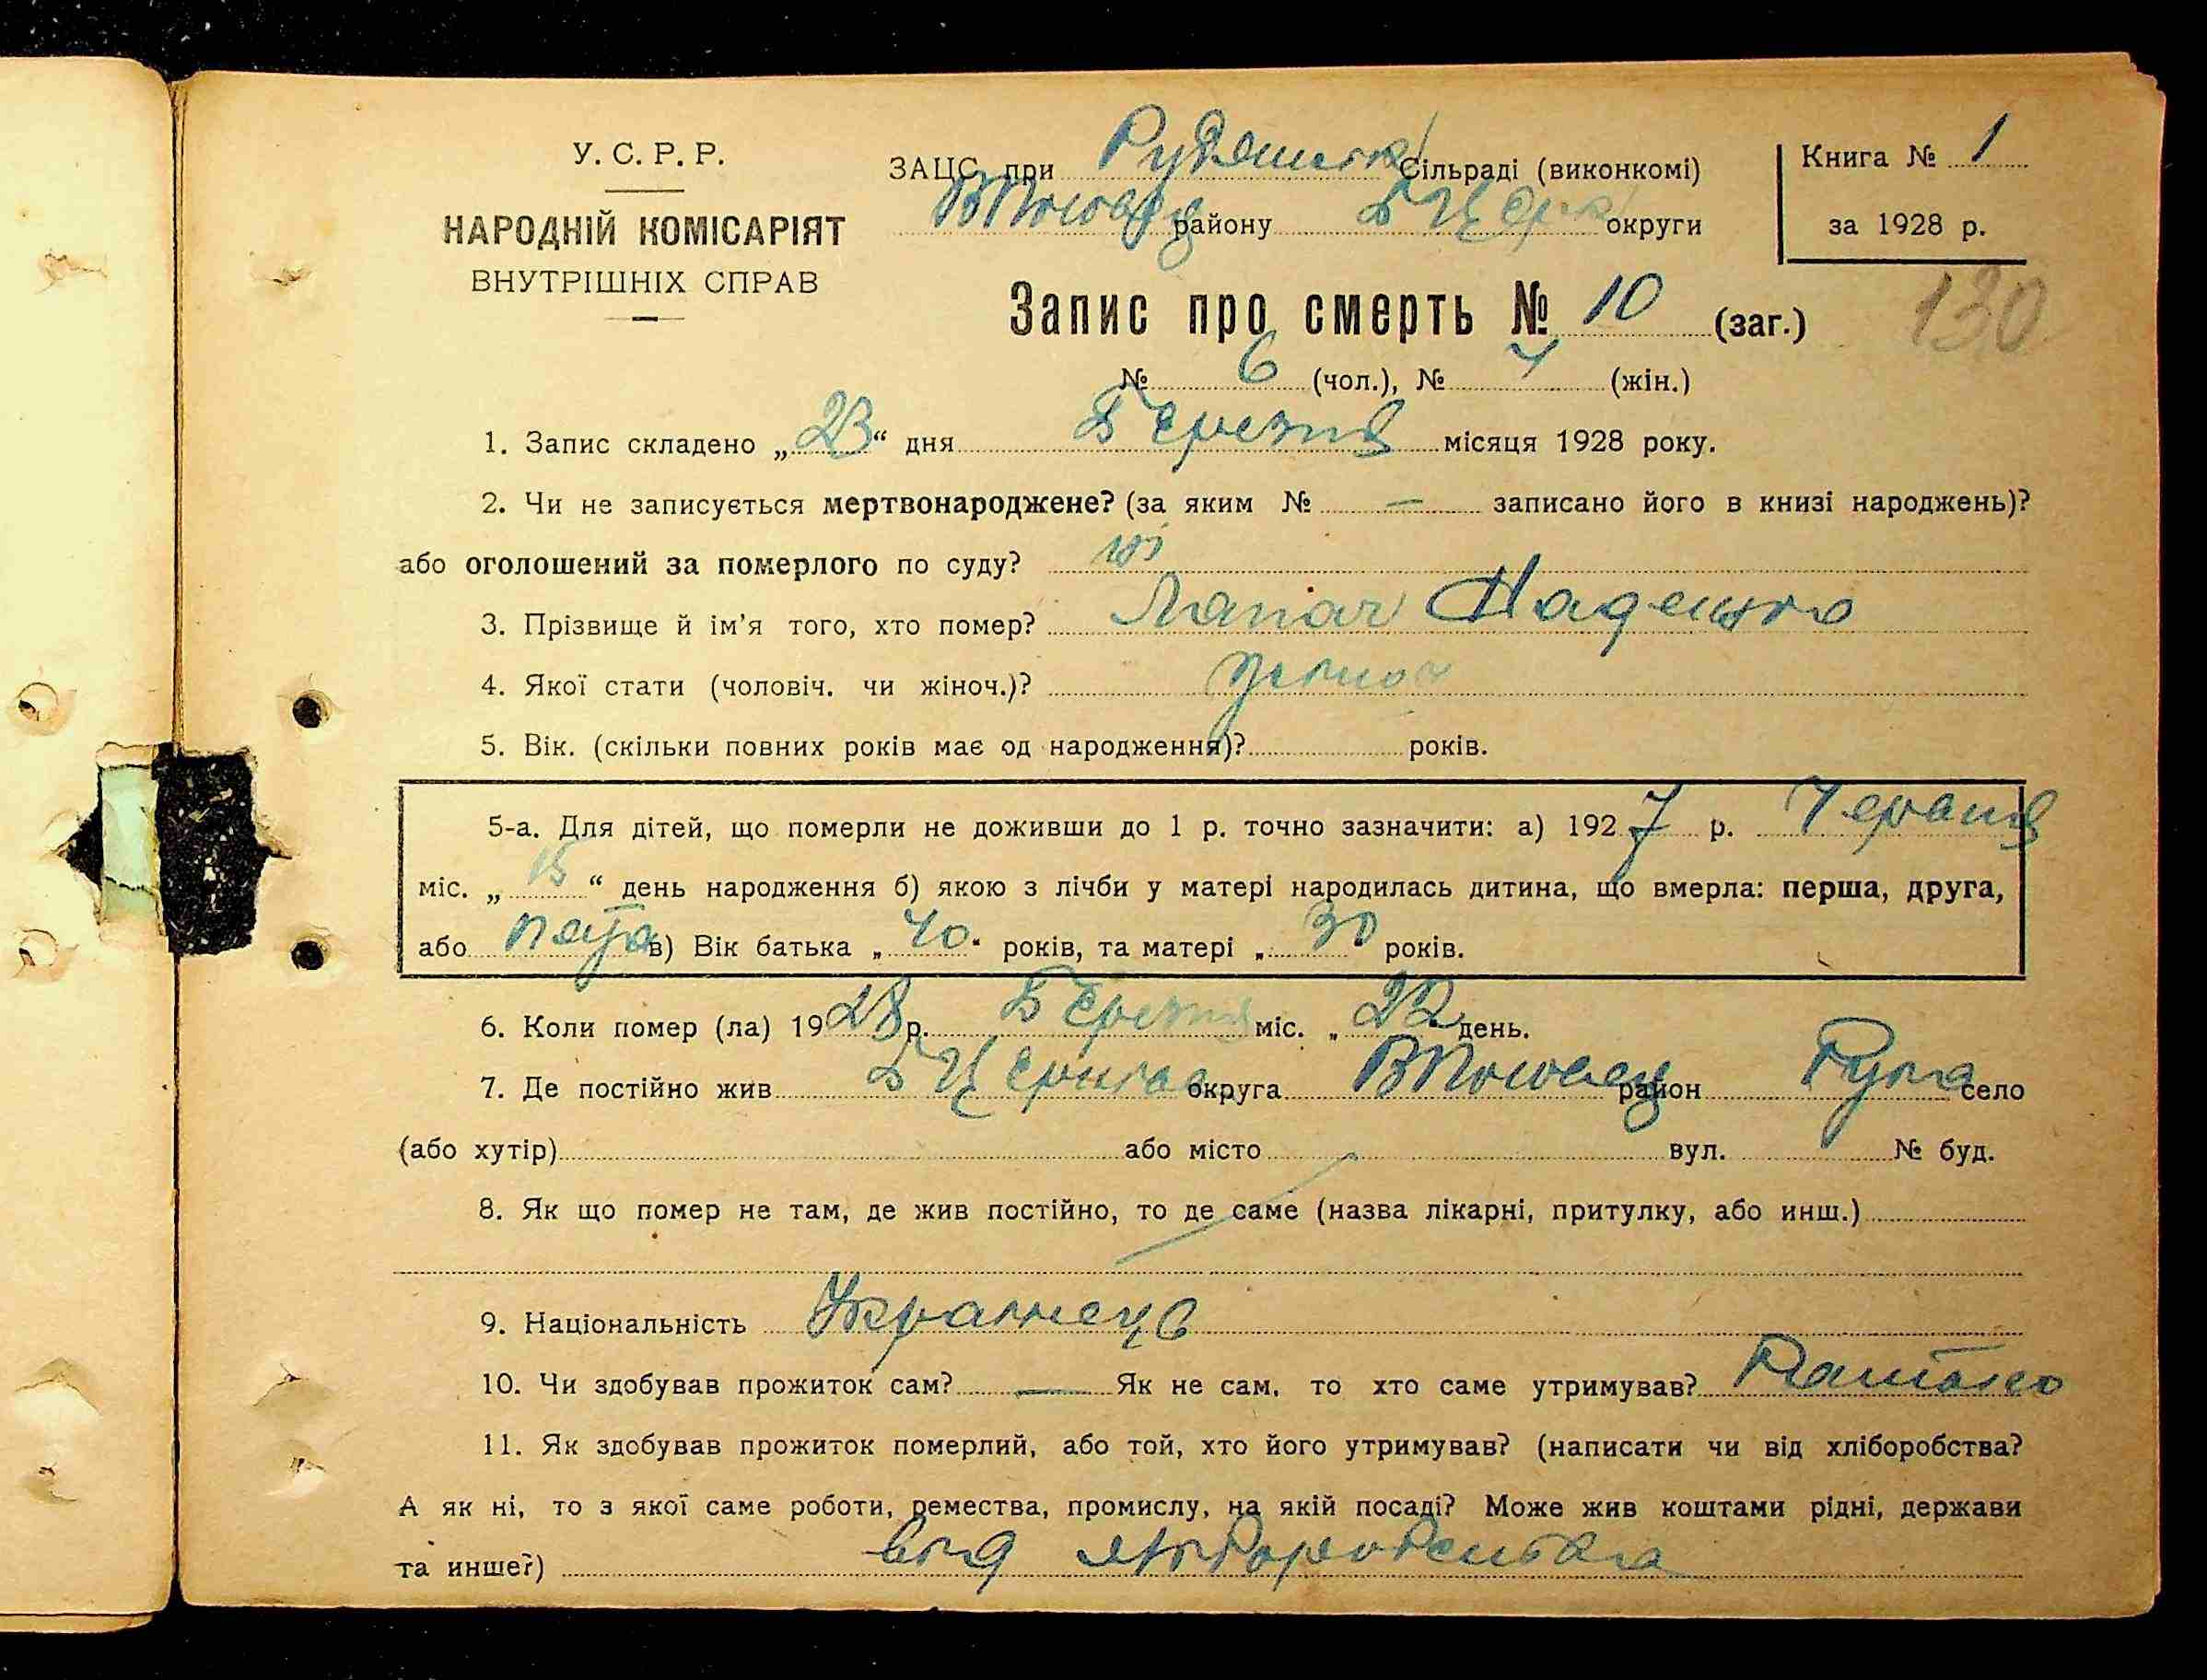 У. С. Р. Р.
НАРОДНІЙ КОМІСАРІЯТ
ВНУТРІШНІХ СПРАВ
ЗАЦС при Рудянській Сільраді (виконкомі)
району Б Церк округи
Книга № 1
за 1928 р.
Запис про смерть № 10 (заг.)
130
№ 6 (чол.), № 4 (жін.)
1. Запис складено „23“ дня Березня місяця 1928 року.
2. Чи не записується мертвонароджене? (за яким № — записано його в книзі народжень)?
або оголошений за померлого по суду? ні
3. Прізвище й ім'я того, хто помер? Лапач
4. Якої стати (чоловіч. чи жіноч.)? жіноч
5. Вік. (скільки повних років має од народження)? років.
5-а. Для дітей, що померли не доживши до 1 р. точно зазначити: а) 1927 р. Червня
міс. „15“ день народження б) якою з лічби у матері народилась дитина, що вмерла: перша, друга,
або в) Вік батька „40“ років, та матері „30“ років.
6. Коли помер (ла) 1928 р. Березня міс. „22 день.
7. Де постійно жив Б Церківс округа район Руда село
(або хутір) або місто вул. № буд.
8. Як що помер не там, де жив постійно, то де саме (назва лікарні, притулку, або инш.)
9. Національність Украінець
10. Чи здобував прожиток сам? — Як не сам, то хто саме утримував? Батько
11. Як здобував прожиток померлий, або той, хто його утримував? (написати чи від хліборобства?
А як ні, то з якої саме роботи, ремества, промислу, на якій посаді? Може жив коштами рідні, держави
та инше?) від хліборобства